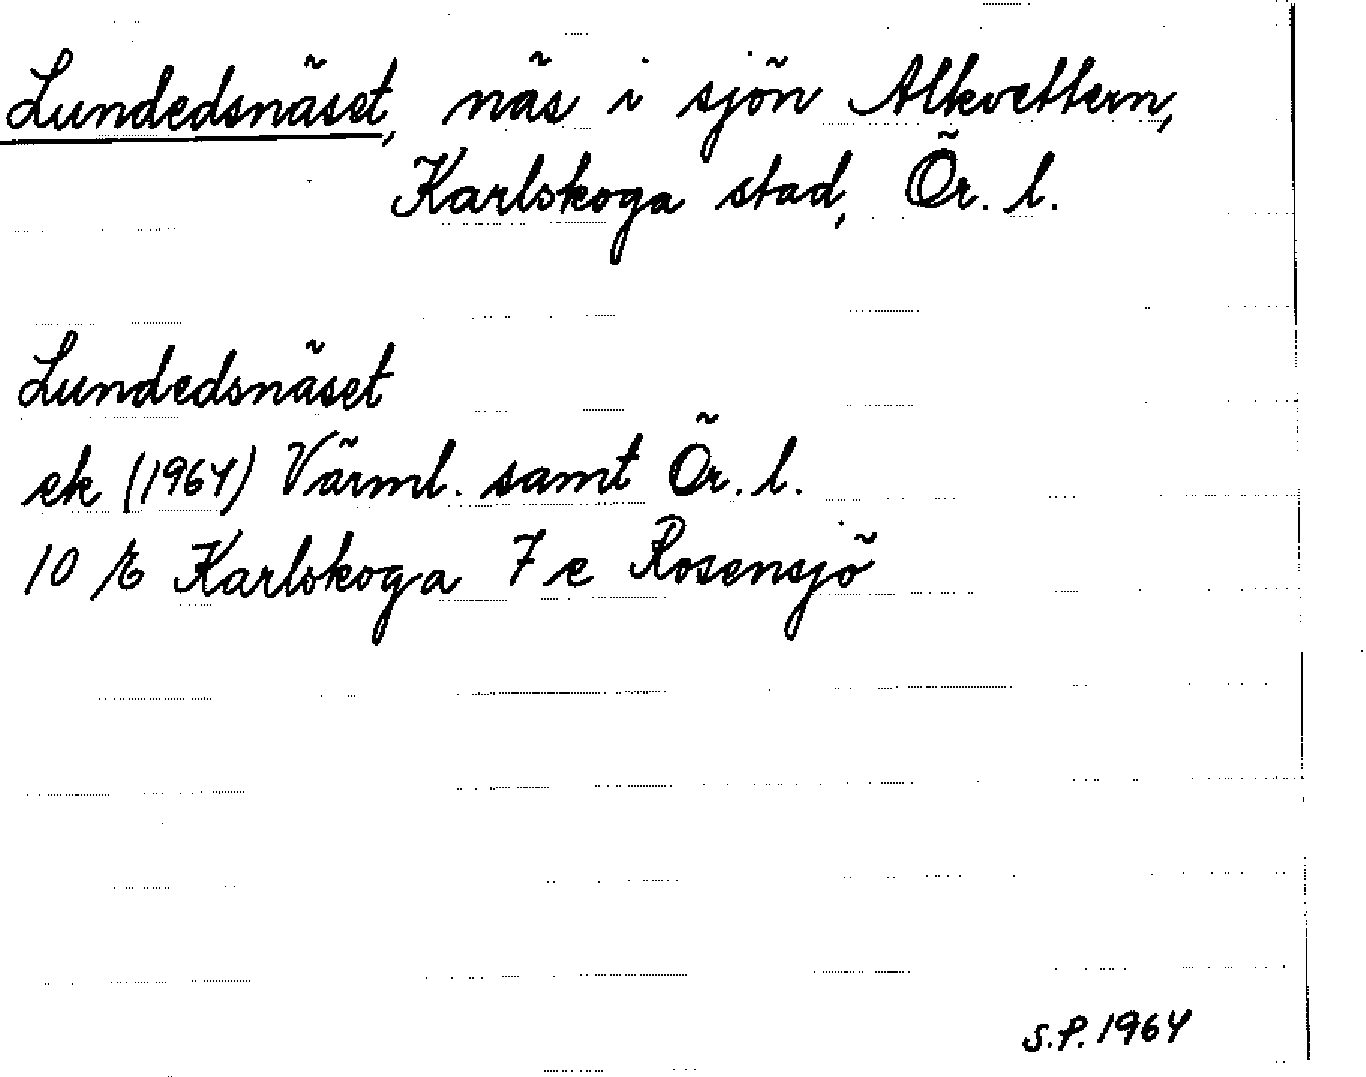 Lundedsnäset, näs i sjön Alkvettern,
Karlskoga stad, Ör. l.
Lundedsnäset
ek (1964) Värml. samt Ör. l.
10 E Karlskoga 7 e Rosensjö
S.P. 1964